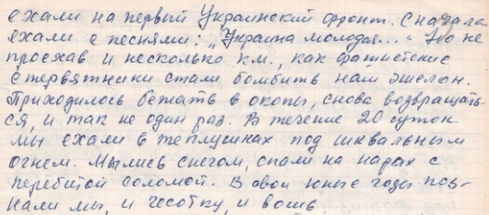 ехали на первый Украинский фронт. Сначала
ехали с песнями: „Украина молодая..." Но не
проехав и несколько км., как фашистские
стервятники стали бомбить наш эшелон.
Приходилось бежать в окопы, снова возвращать-
ся, и так не один раз. В течение 20 суток
мы ехали в теплушках под шквальным
огнем. Мылись снегом, спали на нарах с
перебитой соломой. В свои юные годы поз-
нали мы, и чесотку, и вошь.